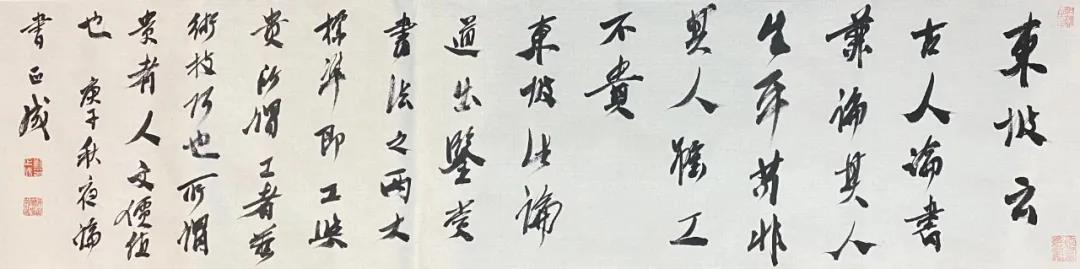 東坡云
古人論書
兼論其人
生平苟非
其人雖工
不貴
東坡此論
道出鑒賞
書法之兩大
標準即工與
貴所謂工者藝
術技巧也所謂
貴者人文價值
也 庚子秋夜
書 正成